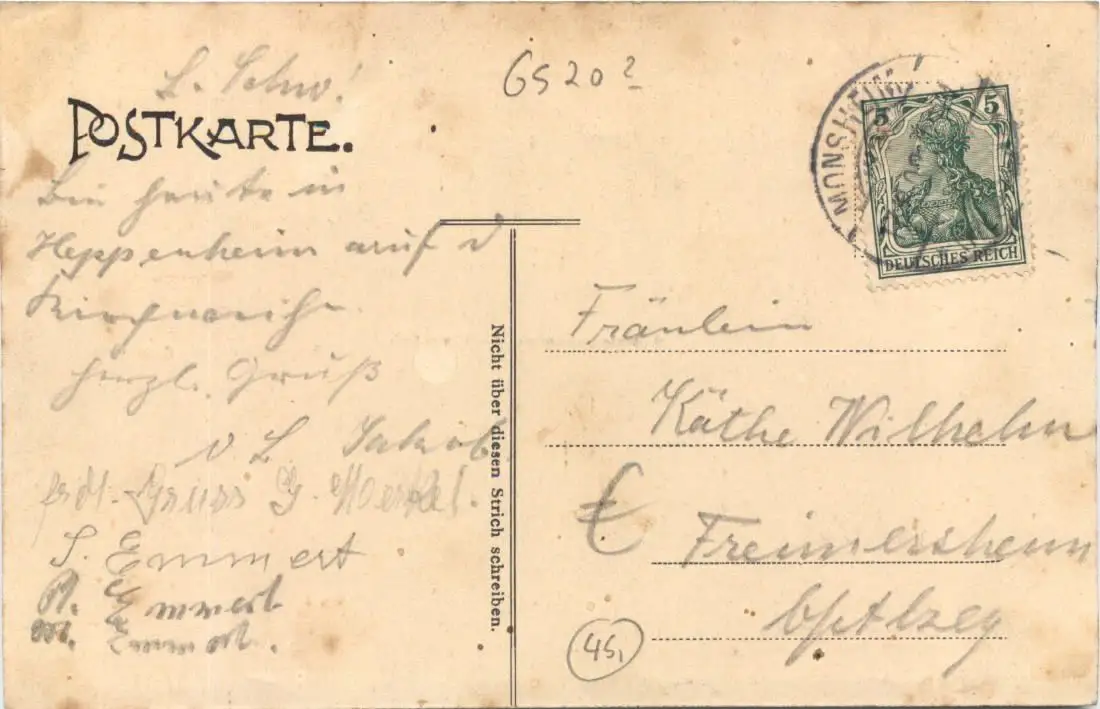 L. Schw!
6520?
POSTKARTE.
Bin heute in
Heppenheim auf d
Kirchweihe.
herzl. Gruß
v L Jakob
frdl. Gruss G.
J. Emmert
A. Emmert
M. Emmert.
Nicht über diesen Strich schreiben.
MONSHEIM
5 5
DEUTSCHES REICH
Fräulein
Käthe Wilhelm
Freimersheim
b/Alzey
45,